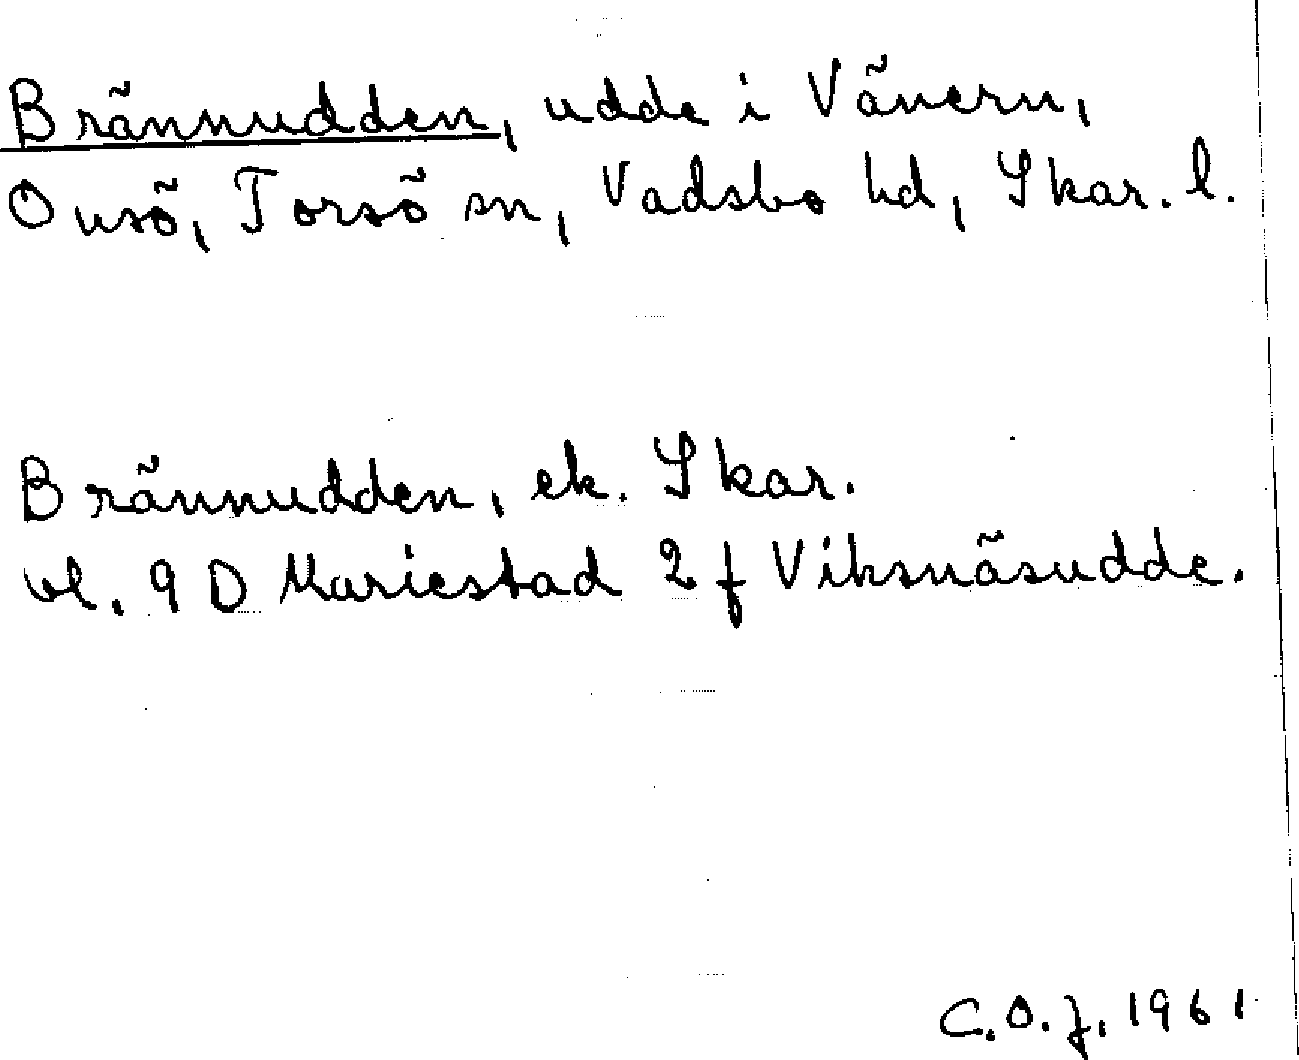 Brännudden, udde i Vänern,
Onsö, Torsö sn, Vadsbo hd, Skar. l.
Brännudden, ek. Skar.
bl. 9 D Mariestad 2 f Viksnäsudde.
C.O.J. 1961